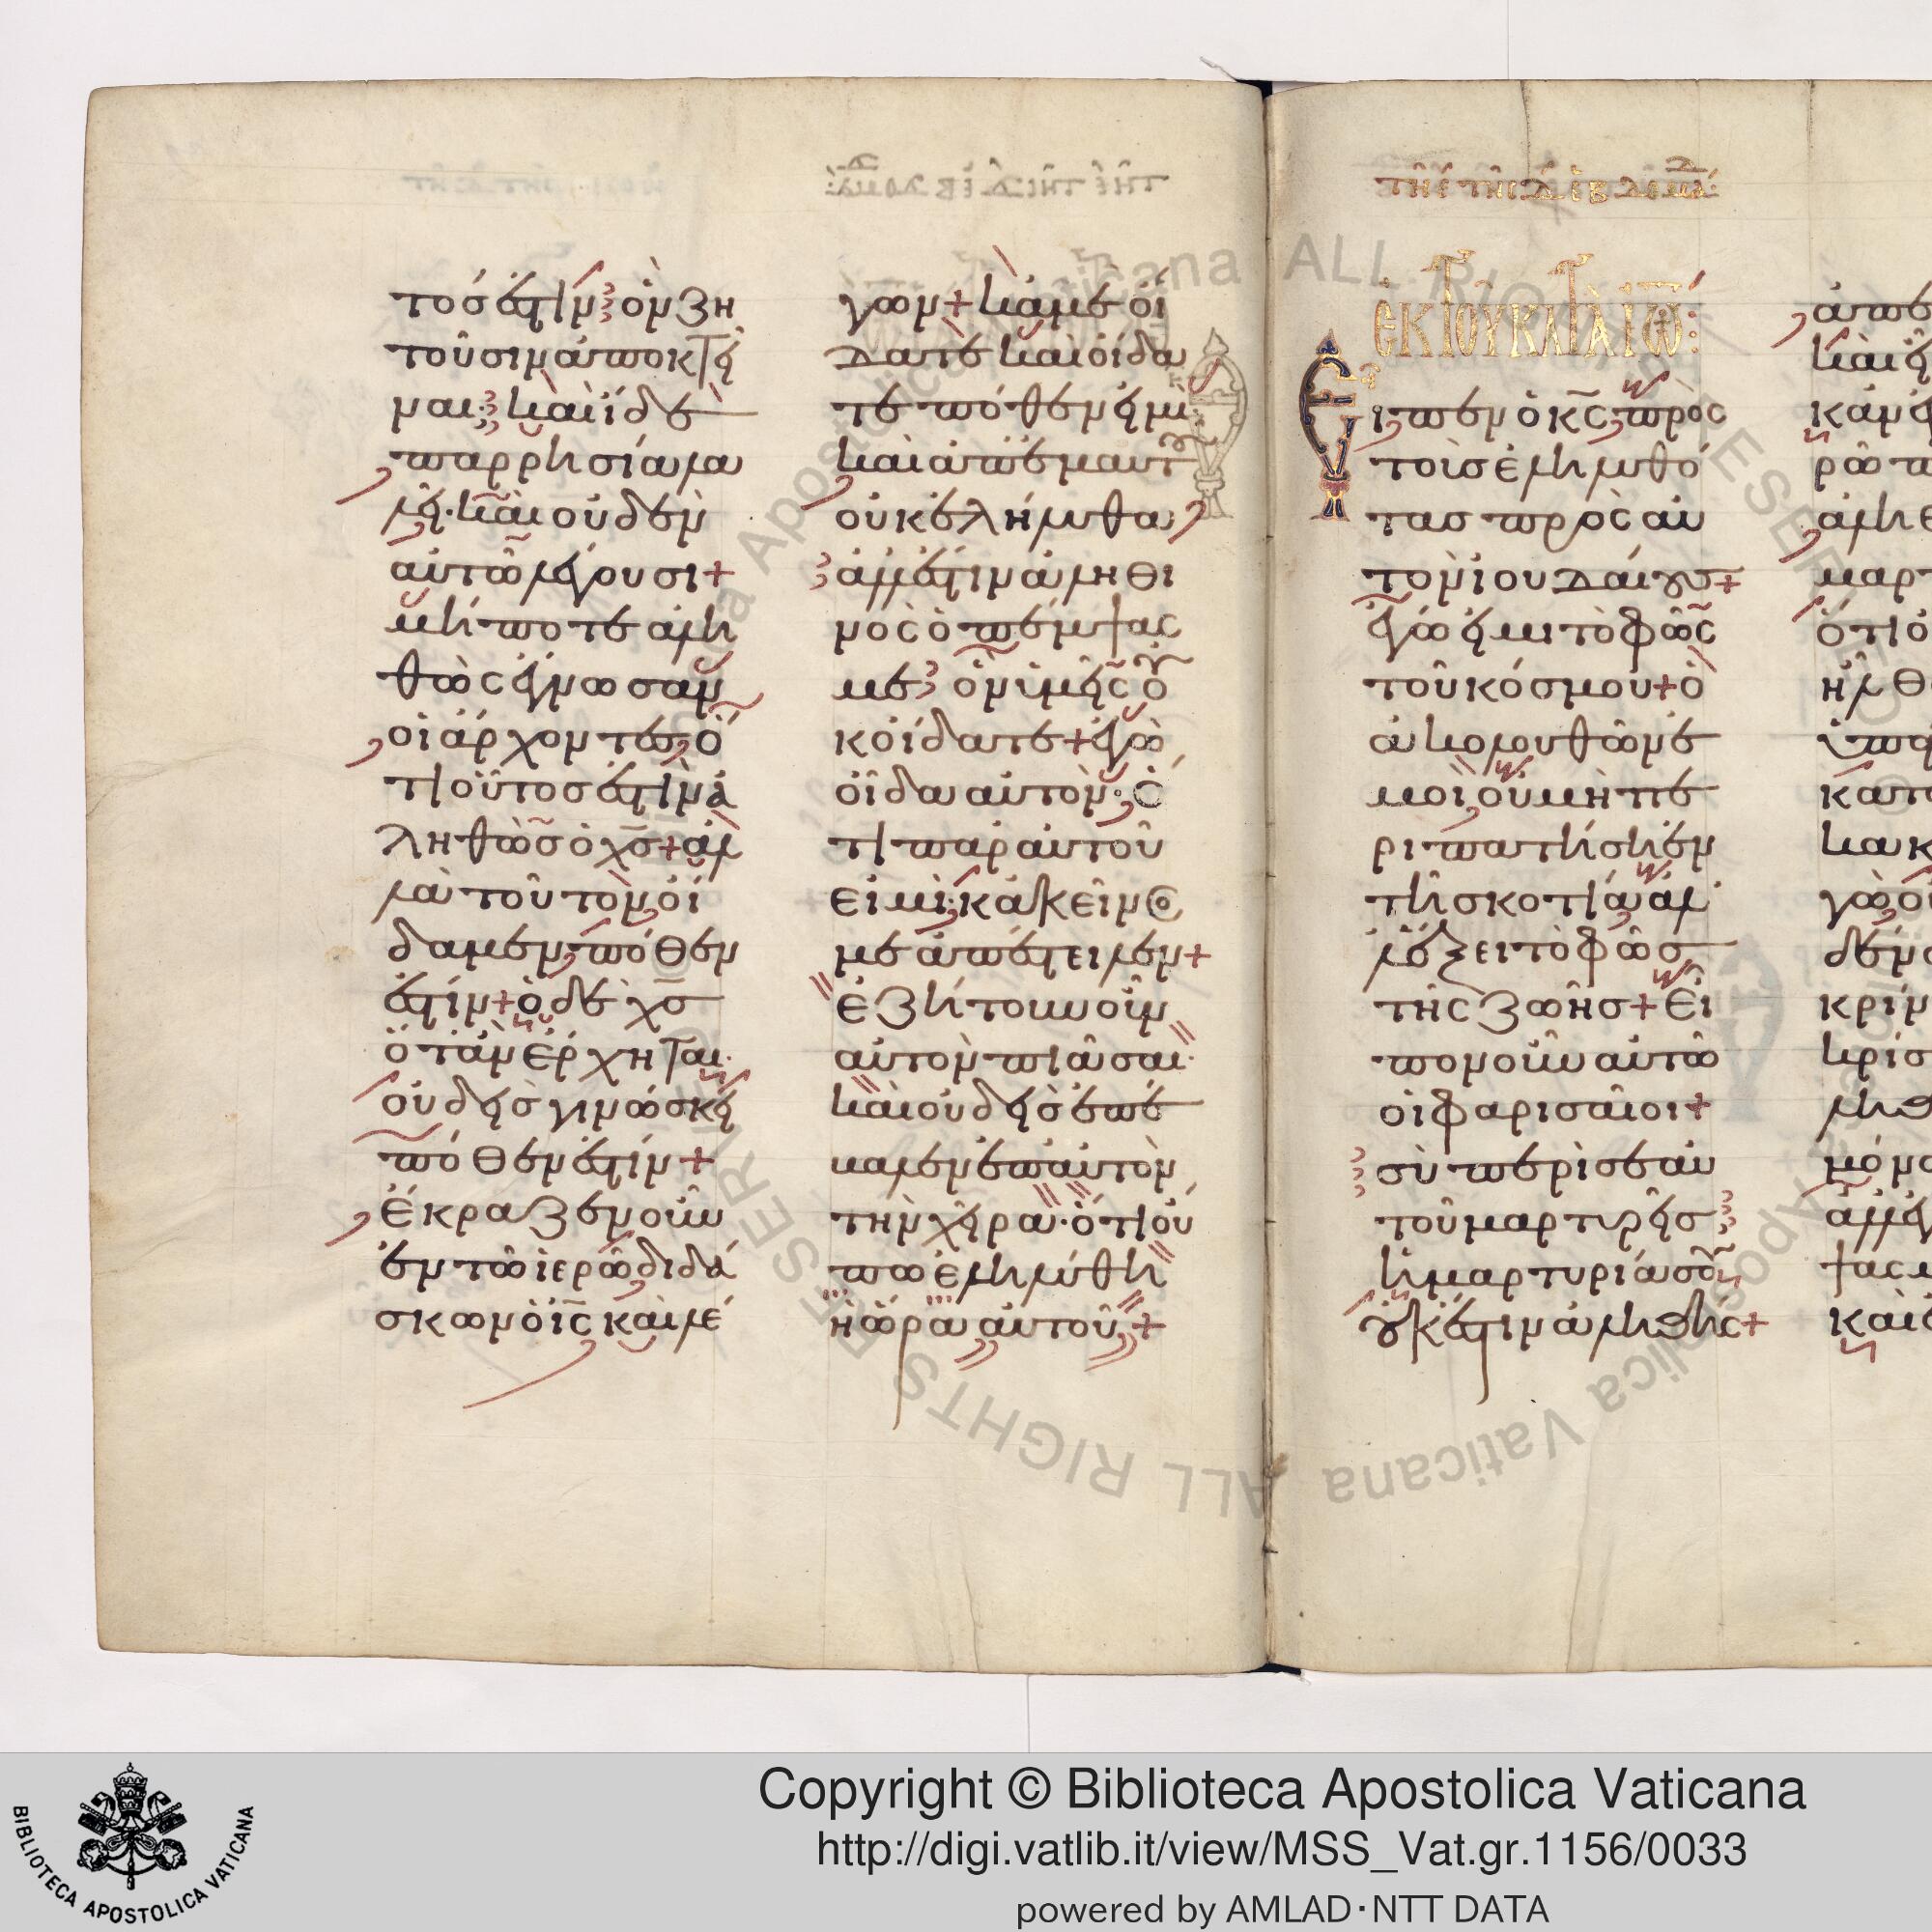 τός ἐστιν ὃν ζη
τοῦσιν ἀποκτεῖ
ναι· καὶ ἴδε
παρρησία λα
λεῖ· καὶ οὐδὲν
αὐτῶ λέγουσι+
μήποτε ἀλη
θῶς ἔγνωσαν
οἱ ἄρχοντες ὅ
τι οὗτος ἐστὶν ἀ
ληθῶς ὁ χς+ ἀλ
λὰ τοῦτον οἴ
δαμεν πόθεν
ἐστίν+ ὁ δὲ χς
ὅταν ἔρχηται·
οὐδεὶς γινώσκει
πόθεν ἐστίν+
Ἔκραζεν οὖν
ἐν τῶ ἱερῶ διδά
σκων ὁ ις καὶ λέ
γων+ κἀμὲ οἴ
δατε καὶ οἴδα
τε πόθεν εἰμι
καὶ ἀπ' ἐμαυτοῦ
οὐκ ἐλήλυθα
ἀλλ' ἔστιν ἀληθι
νὸς ὁ πέμψας
με ὃν ὑμεῖς οὐ
κ οἴδατε+ ἐγὼ
οἶδα αὐτὸν· ὅ
τι παρ' αὐτοῦ
εἰμὶ· κἀκεῖνος
με ἀπέστειλεν+
Ἐζήτουν οὖν
αὐτὸν πιᾶσαι·
καὶ οὐδεὶς ἐπέ
βαλεν ἐπ' αὐτὸν
τὴν χεῖρα· ὅτι οὔ
πω ἐληλύθη
ἡ ὥρα αὐτοῦ+
τῆ ε τῆς δ ἑβδομά:
ἐκ τοῦ κατὰ ιω:
Εἶπεν ὁ κς πρὸς
τοὺς ἐληλυθό
τας πρὸς αὐ
τὸν ἰουδαίους+
ἐγώ εἰμι τὸ φῶς
τοῦ κόσμου+ ὁ
ἀκολουθῶν ἐ
μοὶ οὐ μὴ πε
ριπατήση ἐν
τῆ σκοτία ἀλλ'
ἕξει τὸ φῶς
τῆς ζωῆς+ Εἶ
πον οὖν αὐτῶ
οἱ φαρισαῖοι+
σὺ περὶ σεαυ
τοῦ μαρτυρεῖς
ἡ μαρτυρία σου
οὐκ ἔστιν ἀληθής+
Copyright © Biblioteca Apostolica Vaticana
http://digi.vatlib.it/view/MSS_Vat.gr.1156/0033
powered by AMLAD·NTT DATA
BIBLIOTECA APOSTOLICA VATICANA